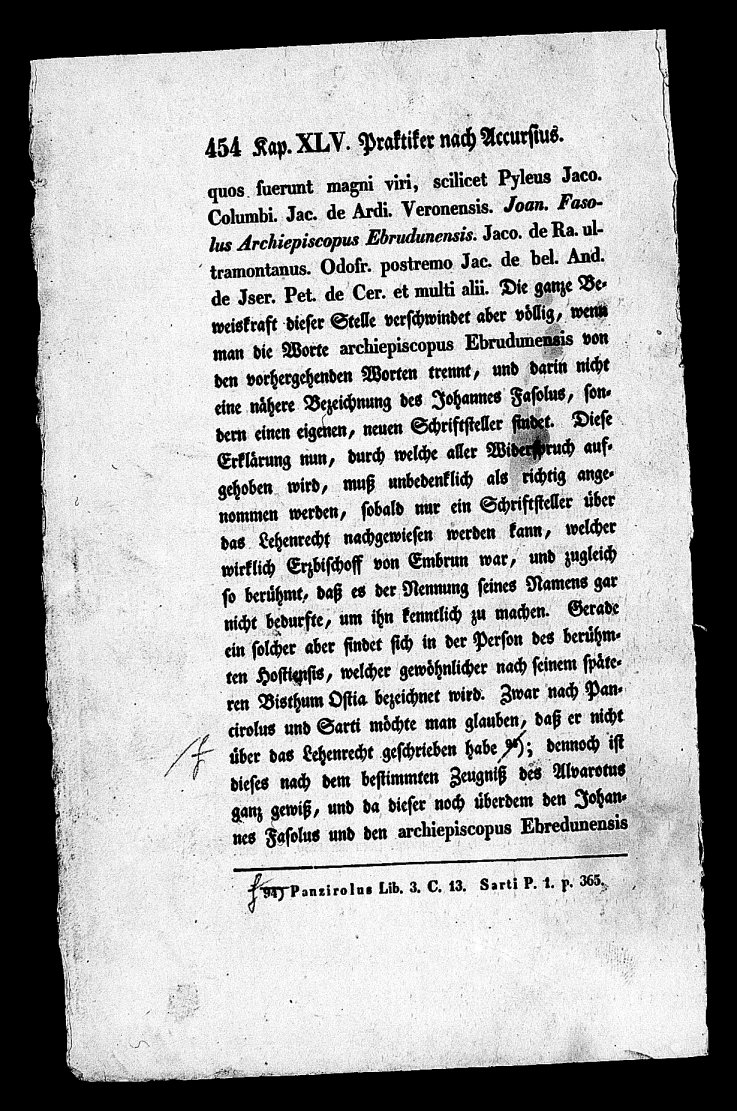 454 Kap. XLV. Praktiker nach Accursius.
quos fuerunt magni viri, scilicet Pyleus Jaco.
Columbi. Jac. de Ardi. Veronensis. Joan. Faso-
lus Archiepiscopus Ebrudunensis. Jaco. de Ra. ul-
tramontanus. Odofr. postremo Jac. de bel. And.
de Jser. Pet. de Cer. et multi alii. Die ganze Be-
weiskraft dieser Stelle verschwindet aber völlig, wenn
man die Worte archiepiscopus Ebrudunensis von
den vorhergehenden Worten trennt, und darin nicht
eine nähere Bezeichnung des Johannes Fasolus, son-
dern einen eigenen, neuen Schriftsteller findet. Diese
Erklärung nun, durch welche aller Widerspruch auf-
gehoben wird, muß unbedenklich als richtig ange-
nommen werden, sobald nur ein Schriftsteller über
das Lehenrecht nachgewiesen werden kann, welcher
wirklich Erzbischoff von Embrun war, und zugleich
so berühmt, daß es der Nennung seines Namens gar
nicht bedurfte, um ihn kenntlich zu machen. Gerade
ein solcher aber findet sich in der Person des berühm-
ten Hostiensis, welcher gewöhnlicher nach seinem späte-
ren Bisthum Ostia bezeichnet wird. Zwar nach Pan-
cirolus und Sarti möchte man glauben, daß er nicht
f über das Lehenrecht geschrieben habe 94); dennoch ist
dieses nach dem bestimmten Zeugniß des Alvarotus
ganz gewiß, und da dieser noch überdem den Johan-
nes Fasolus und den archiepiscopus Ebredunensis
f 94) Panzirolus Lib. 3. C. 13. Sarti P. 1. p. 365.